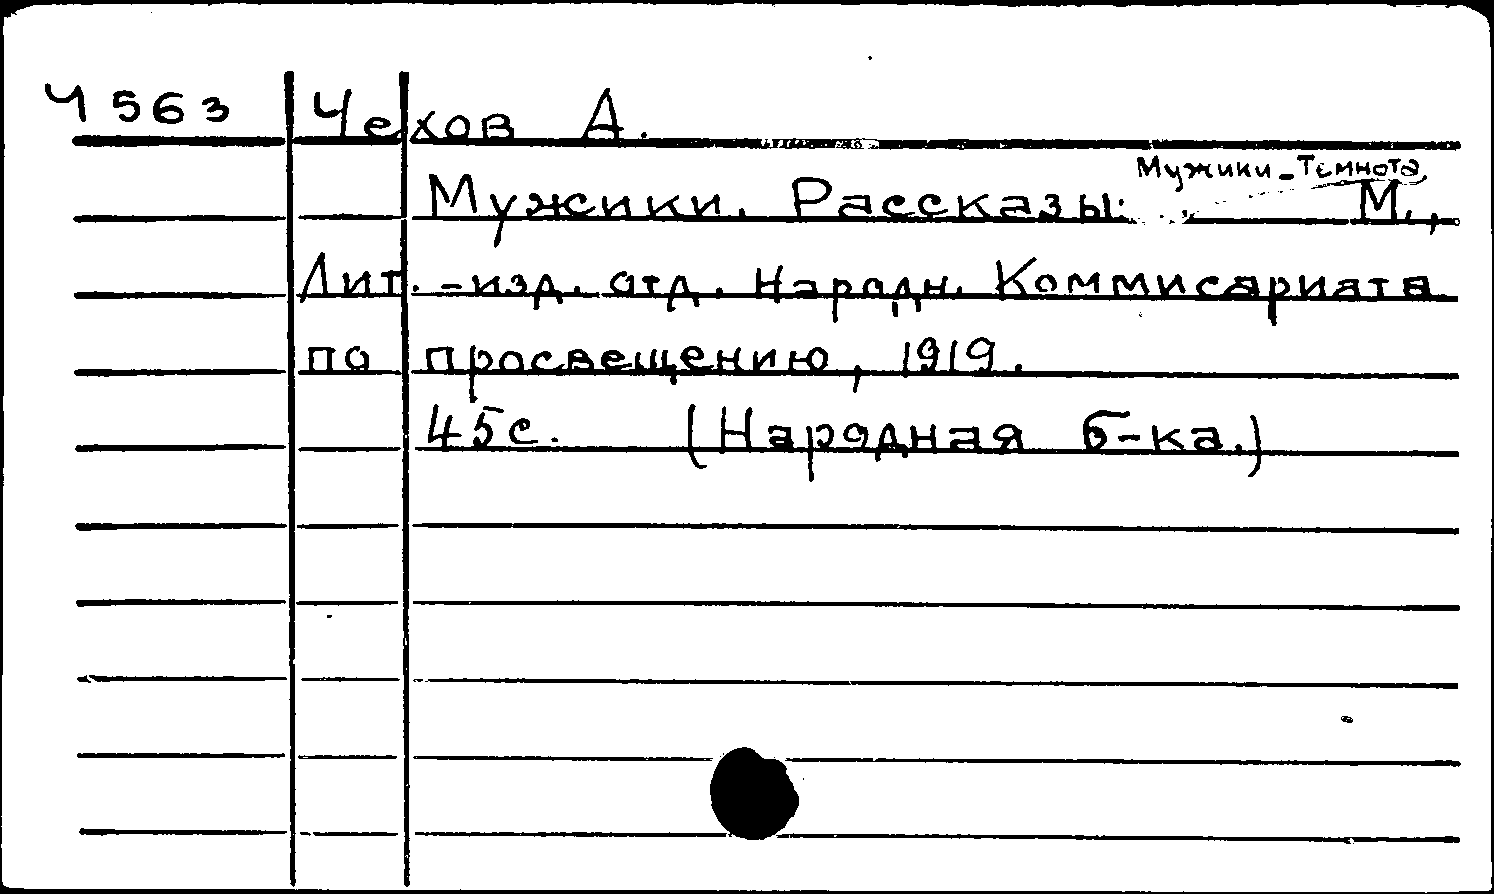 Ч 563 Чехов А.
Мужики - Темнота.
Мужики. Рассказы. М.,
Лит.-изд. отд. Народн. Коммисариата
по просвещению, 1919.
45с. (Народная б-ка.)